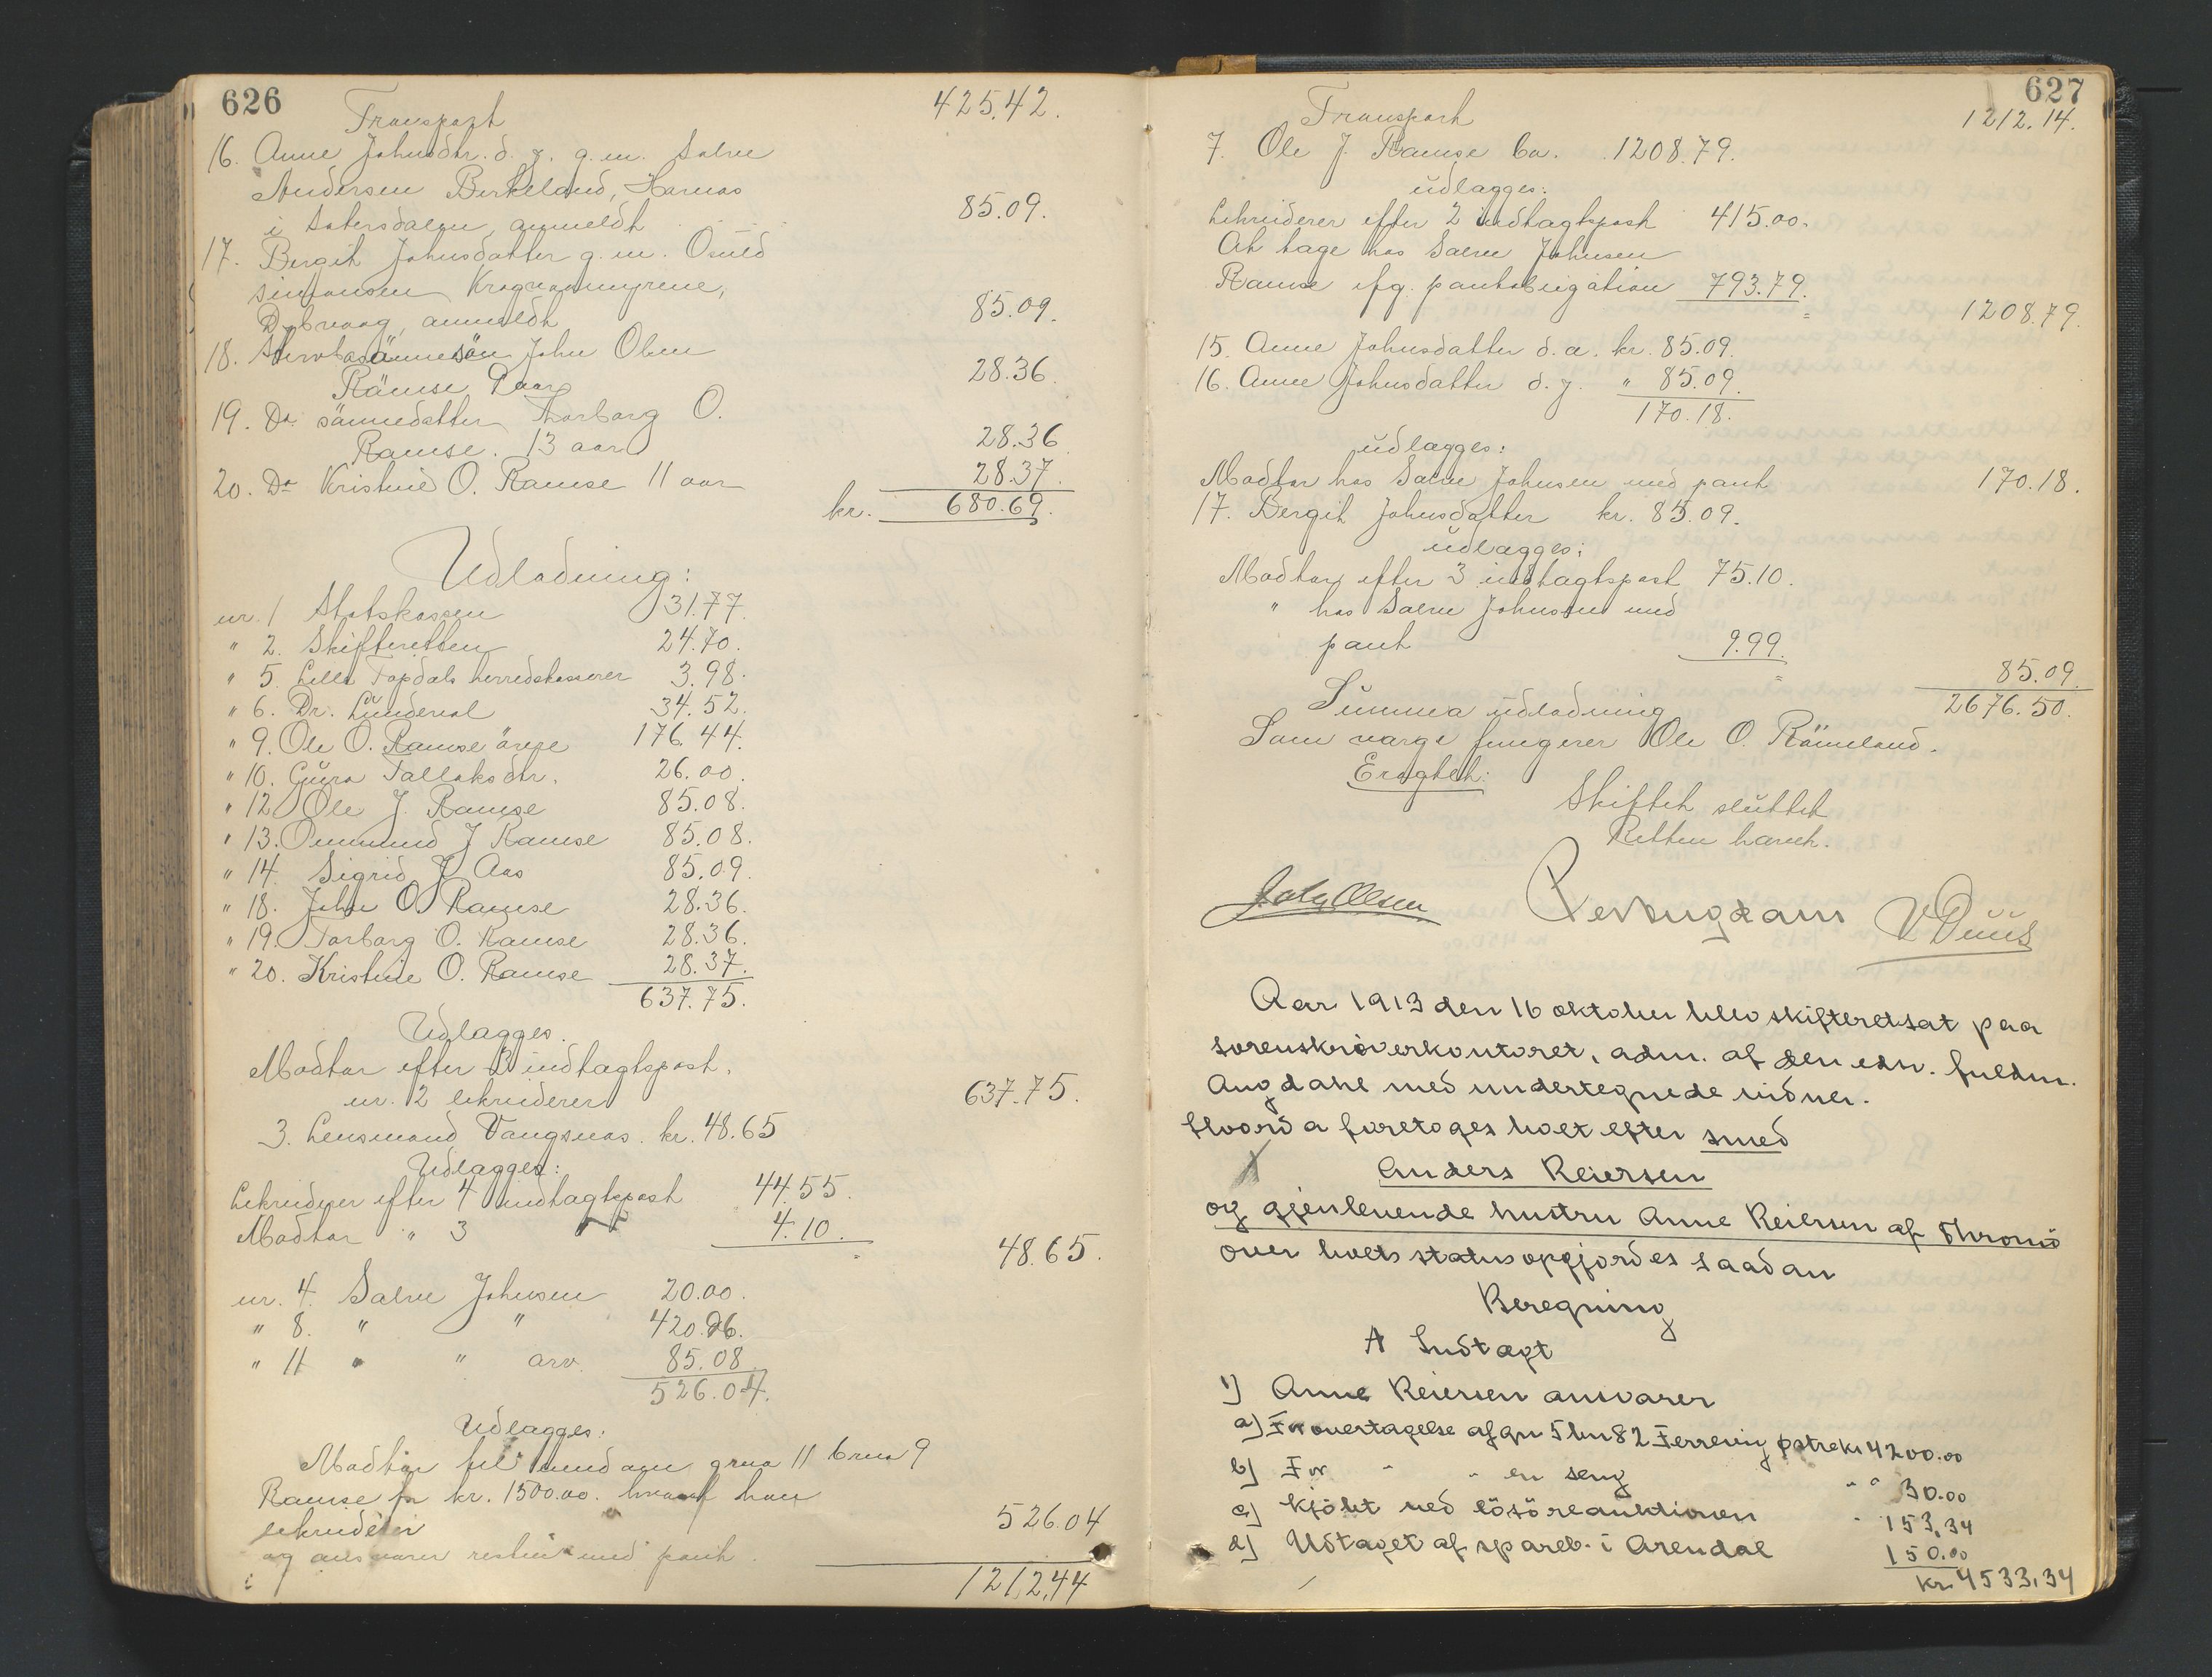 626
Transport 425.42.
16. Anne Johnsdtr. d. y. g. m. Salve
Andersen Birkeland, Hornes
i Sætersdalen, anmeldt 85.09.
17. Bergit Johnsdatter g. m. Osuld
Simonsen
Dybvaag, anmeldt 85.09.
18. Stervbosønnesøn John Olsen
Ramse 9 aar 28.36.
19. Do sønnedatter Thorborg O.
Ramse. 13 aar 28.36
20. Do Kristine O. Ramse 11 aar 28.37.
kr. 680.69.
Udlodning:
nr. 1 Statskassen 131.77.
" 2. Skifteretten 24.70.
" 5. Lille Topdals herredskasserer 3.98.
" 6. Dr. Lundevold 34.52.
" 9. Ole O. Ramse øvre 176.44.
" 10. Gura Tallaksdtr. 26.00.
" 12 Ole J. Ramse 85.08.
" 13. Ommund J Ramse 85.08.
" 14. Sigrid J Aas 85.09.
" 18. John O. Ramse 28.36.
" 19. Torborg O. Ramse 28.36.
" 20. Kristine O. Ramse 28.37.
637.75.
Udlægges.
Modtar efter 3 indtægtspost.
nr. 2 likviderer 637.75.
3. Lensmand Vangsnæs. kr. 48.65
Udlægges:
Likviderer efter 4 indtægtspost 44.55.
Modtar " 3 " 4.10.
48.65.
nr. 4. Salve Johnsen 20.00.
" 8. " " 420.96.
" 11 " " arv. 85.08.
526.04.
Udlægges:
Modtar fel. eiendom grno 11 brno 9
Ramse for kr. 1500.00. hvoraf han
likviderer 526.04
og ansvarer resten med pant.
1212.44
627
Transport 1212.14.
7. Ole J. Ramse Co. 1208.79.
udlægges:
Likviderer efter 2 indtægtspost 415.00.
At tage hos Salve Johnsen
Ramse ifg. pantobligation 793.79.
1208.79.
15. Anne Johnsdatter d. æ. kr. 85.09.
16. Anne Johnsdatter d. y. " 85.09.
170.18.
udlægges:
Modtar hos Salve Johnsen med pant 170.18.
17. Bergit Johnsdatter kr. 85.09.
udlægges:
Modtar efter 3 indtægtspost 75.10.
" hos Salve Johnsen med
pant 9.99.
85.09.
Summa udlodning 2676.50.
Som værge fungerer Ole O. Rømeland.
Eragtet:
Skiftet sluttet
Retten hævet.
John Olsen Per Augdahl V Duus
Aar 1913 den 16 oktober blev skifteret sat paa
sorenskriverkontoret, adm. af den edsv. fuldm.
Augdahl med undertegnede vidner.
Hvorda foretoges boet efter smed
Anders Reiersen
og gjenlevende hustru Anne Reiersen af Thromø
over boets status opgjordes saadan
Beregning
A Indtægt
1) Anne Reiersen ansvarer
a) For overtagelse af gn 5 bn 82 Færvig østre kr 4200.00
b) For " " en seng " " 30.00
c) kjøbt ved løsøreauktionen " 153,34
d) Udtaget af spareb. i Arendal 150.00
kr. 4533,34